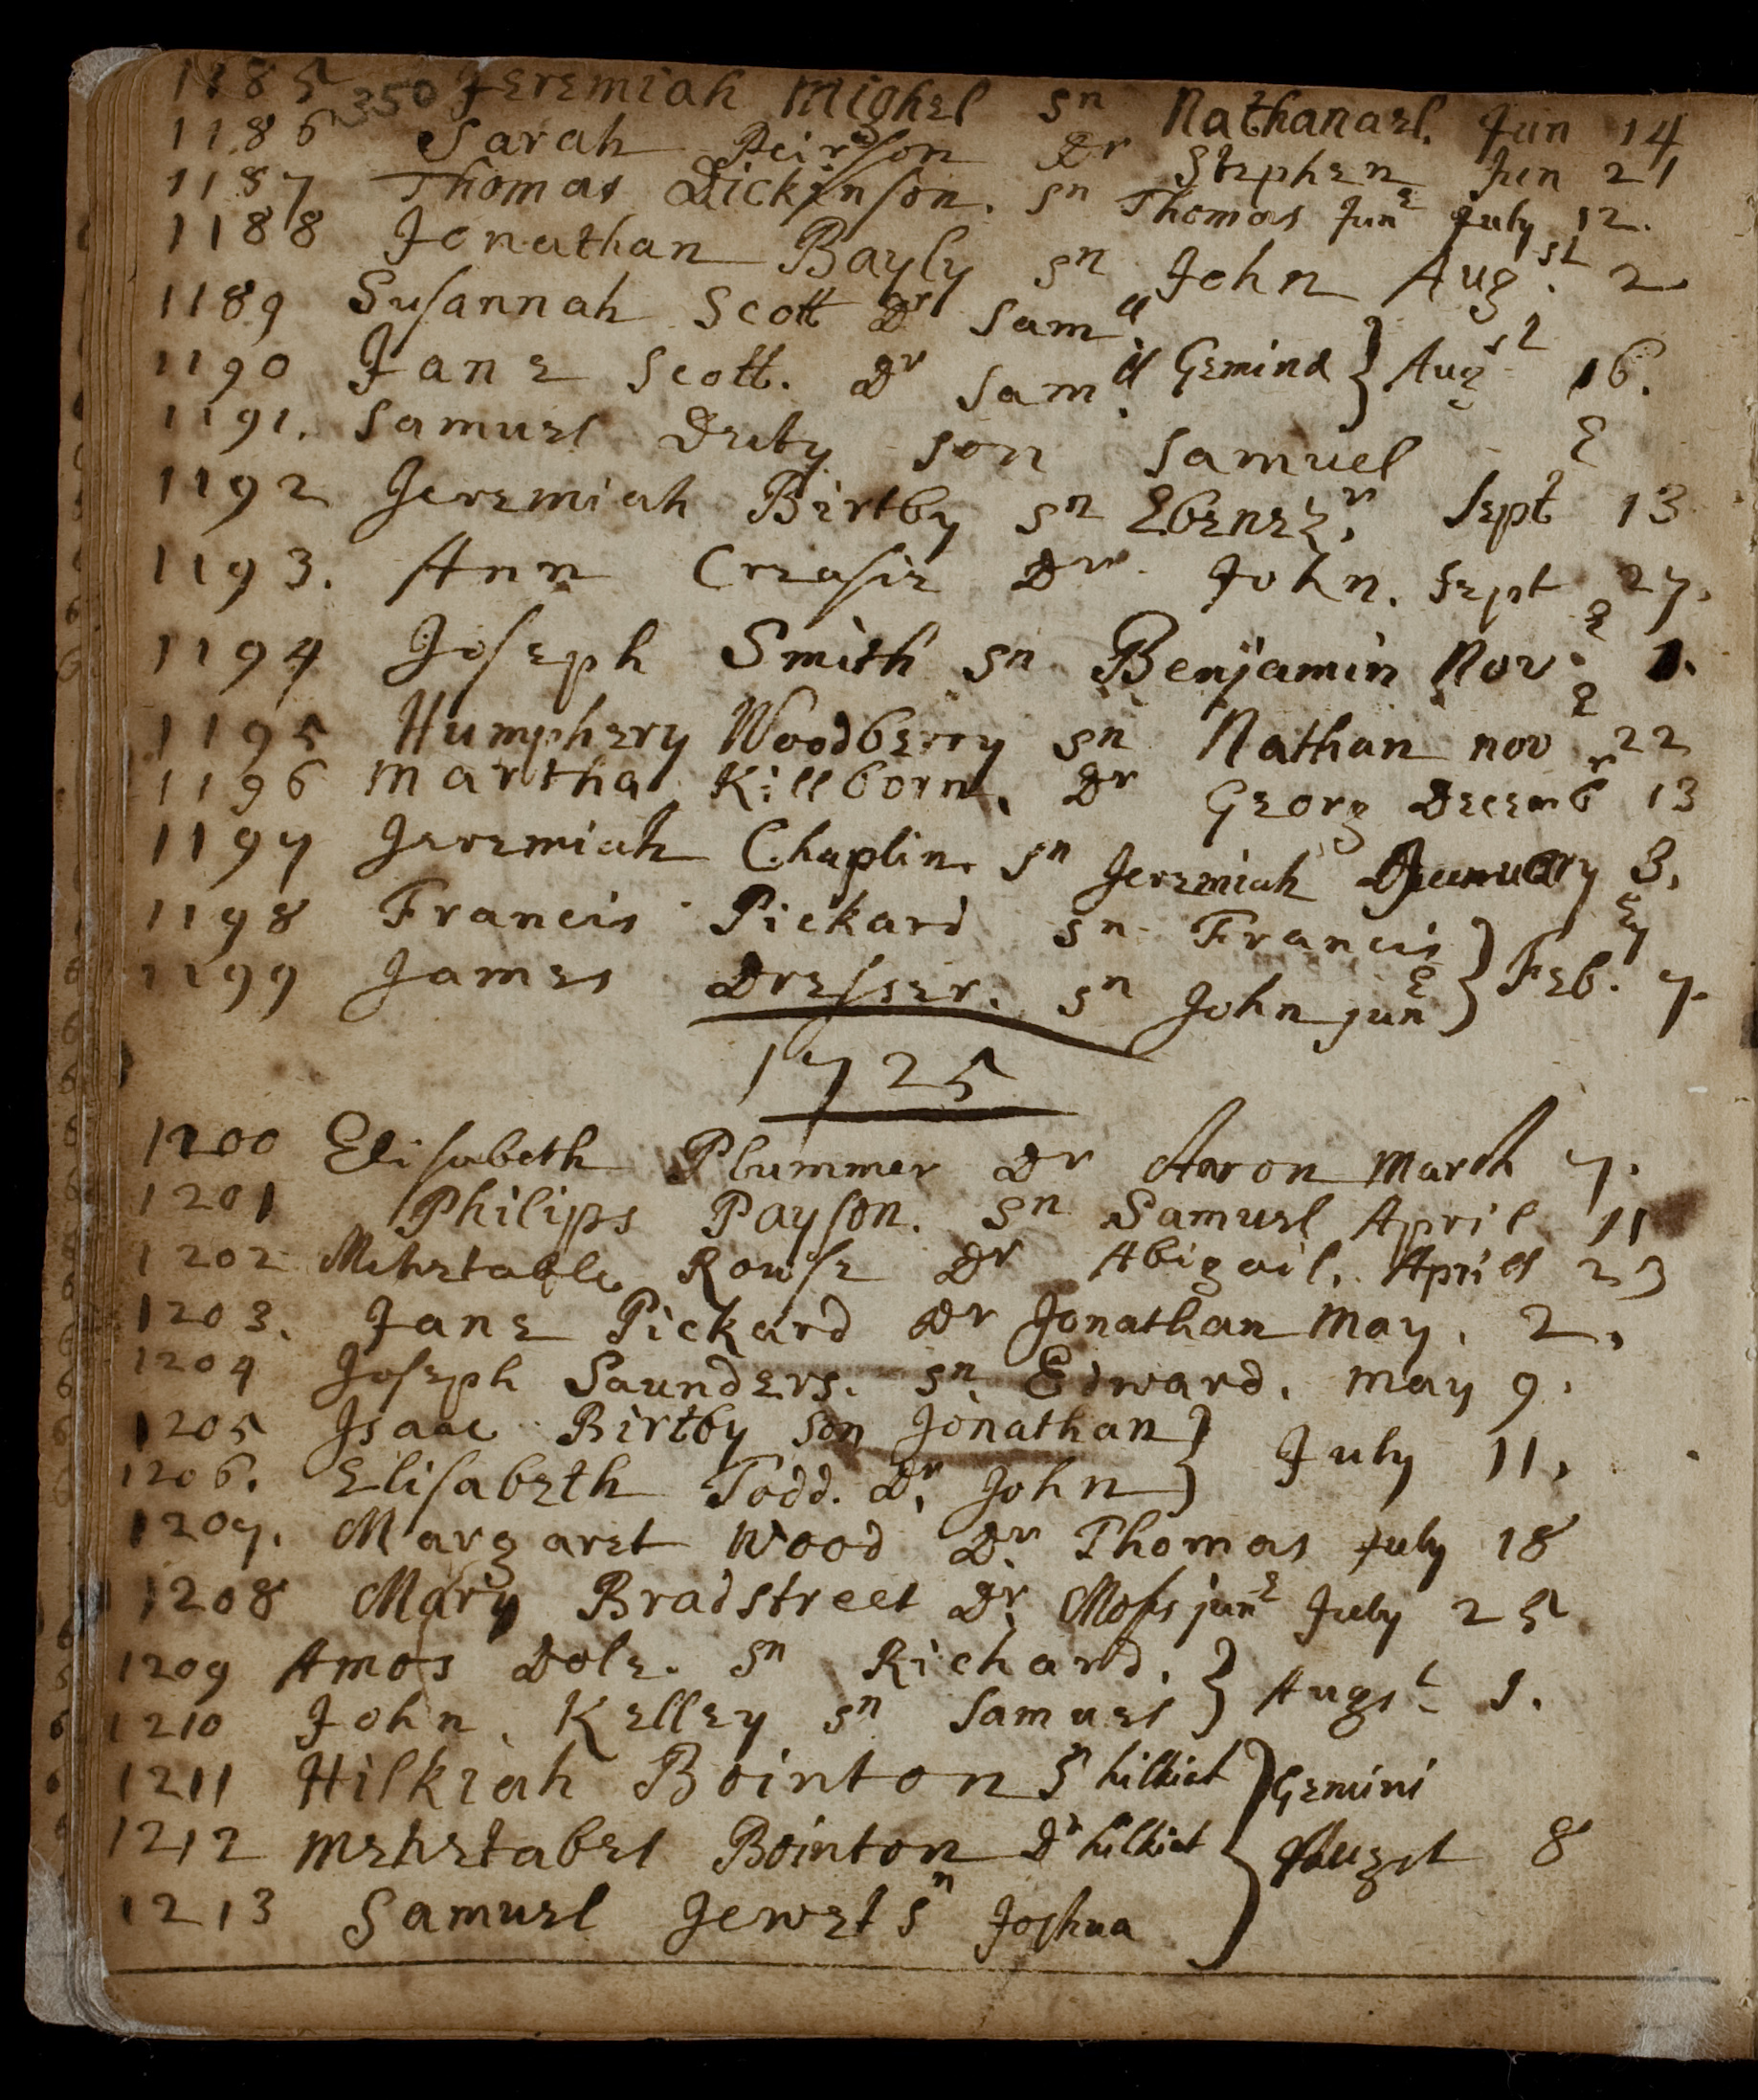 1185 350 Jeremiah Mighel sn Nathanael. Jun 14
1186 Sarah Peirson Dr Stephen Jun 21
1187 Thomas Dickinson. sn Thomas Junr July 12.
1188 Jonathan Bayly sn John Augst. 2
1189 Susannah Scott Dr Samll
1190 Jane Scott. Dr Samll. Gemina } Augst 16.
1191. Samuel Duty son Samuel
1192 Jeremiah Birtby sn Ebenezr. Sept 13
1193. Ann Creasie Dr. John. Sept 27.
1194 Joseph Smith sn Benjamin Novr. 1.
1195 Humphery Woodberry sn Nathan novr 22
1196 Martha Killborn. Dr Georg Decembr 13
1197 Jeremiah Chaplin sn Jeremiah January 3.
1198 Francis Pickard sn Francis
1199 James Dresser. sn John junr } Feb. 7.
1725
1200 Elisabeth Plummer Dr Aaron March 7.
1201 Philips Payson. Sn Samuel April 11
1202 Mehetable Rouse Dr Abigail. April 23
1203. Jane Pickard Dr Jonathan May. 2.
1204 Joseph Saunders. sn. Edward. may 9.
1205 Isaac Birtby son Jonathan
1206. Elisabeth Todd. Dr. John } July 11.
1207. Margaret Wood Dr. Thomas July 18
1208 Mary Bradstreet Dr. Moses junr July 25
1209 Amos Dole. sn Richard.
1210 John. Kelley sn Samuel } Augst 1.
1211 Hilkiah Bointon Sn hilkiah } Gemini
1212 Mehetabel Bointon Dr hilkiah } Augst 8
1213 Samuel Jewet sn Joshua